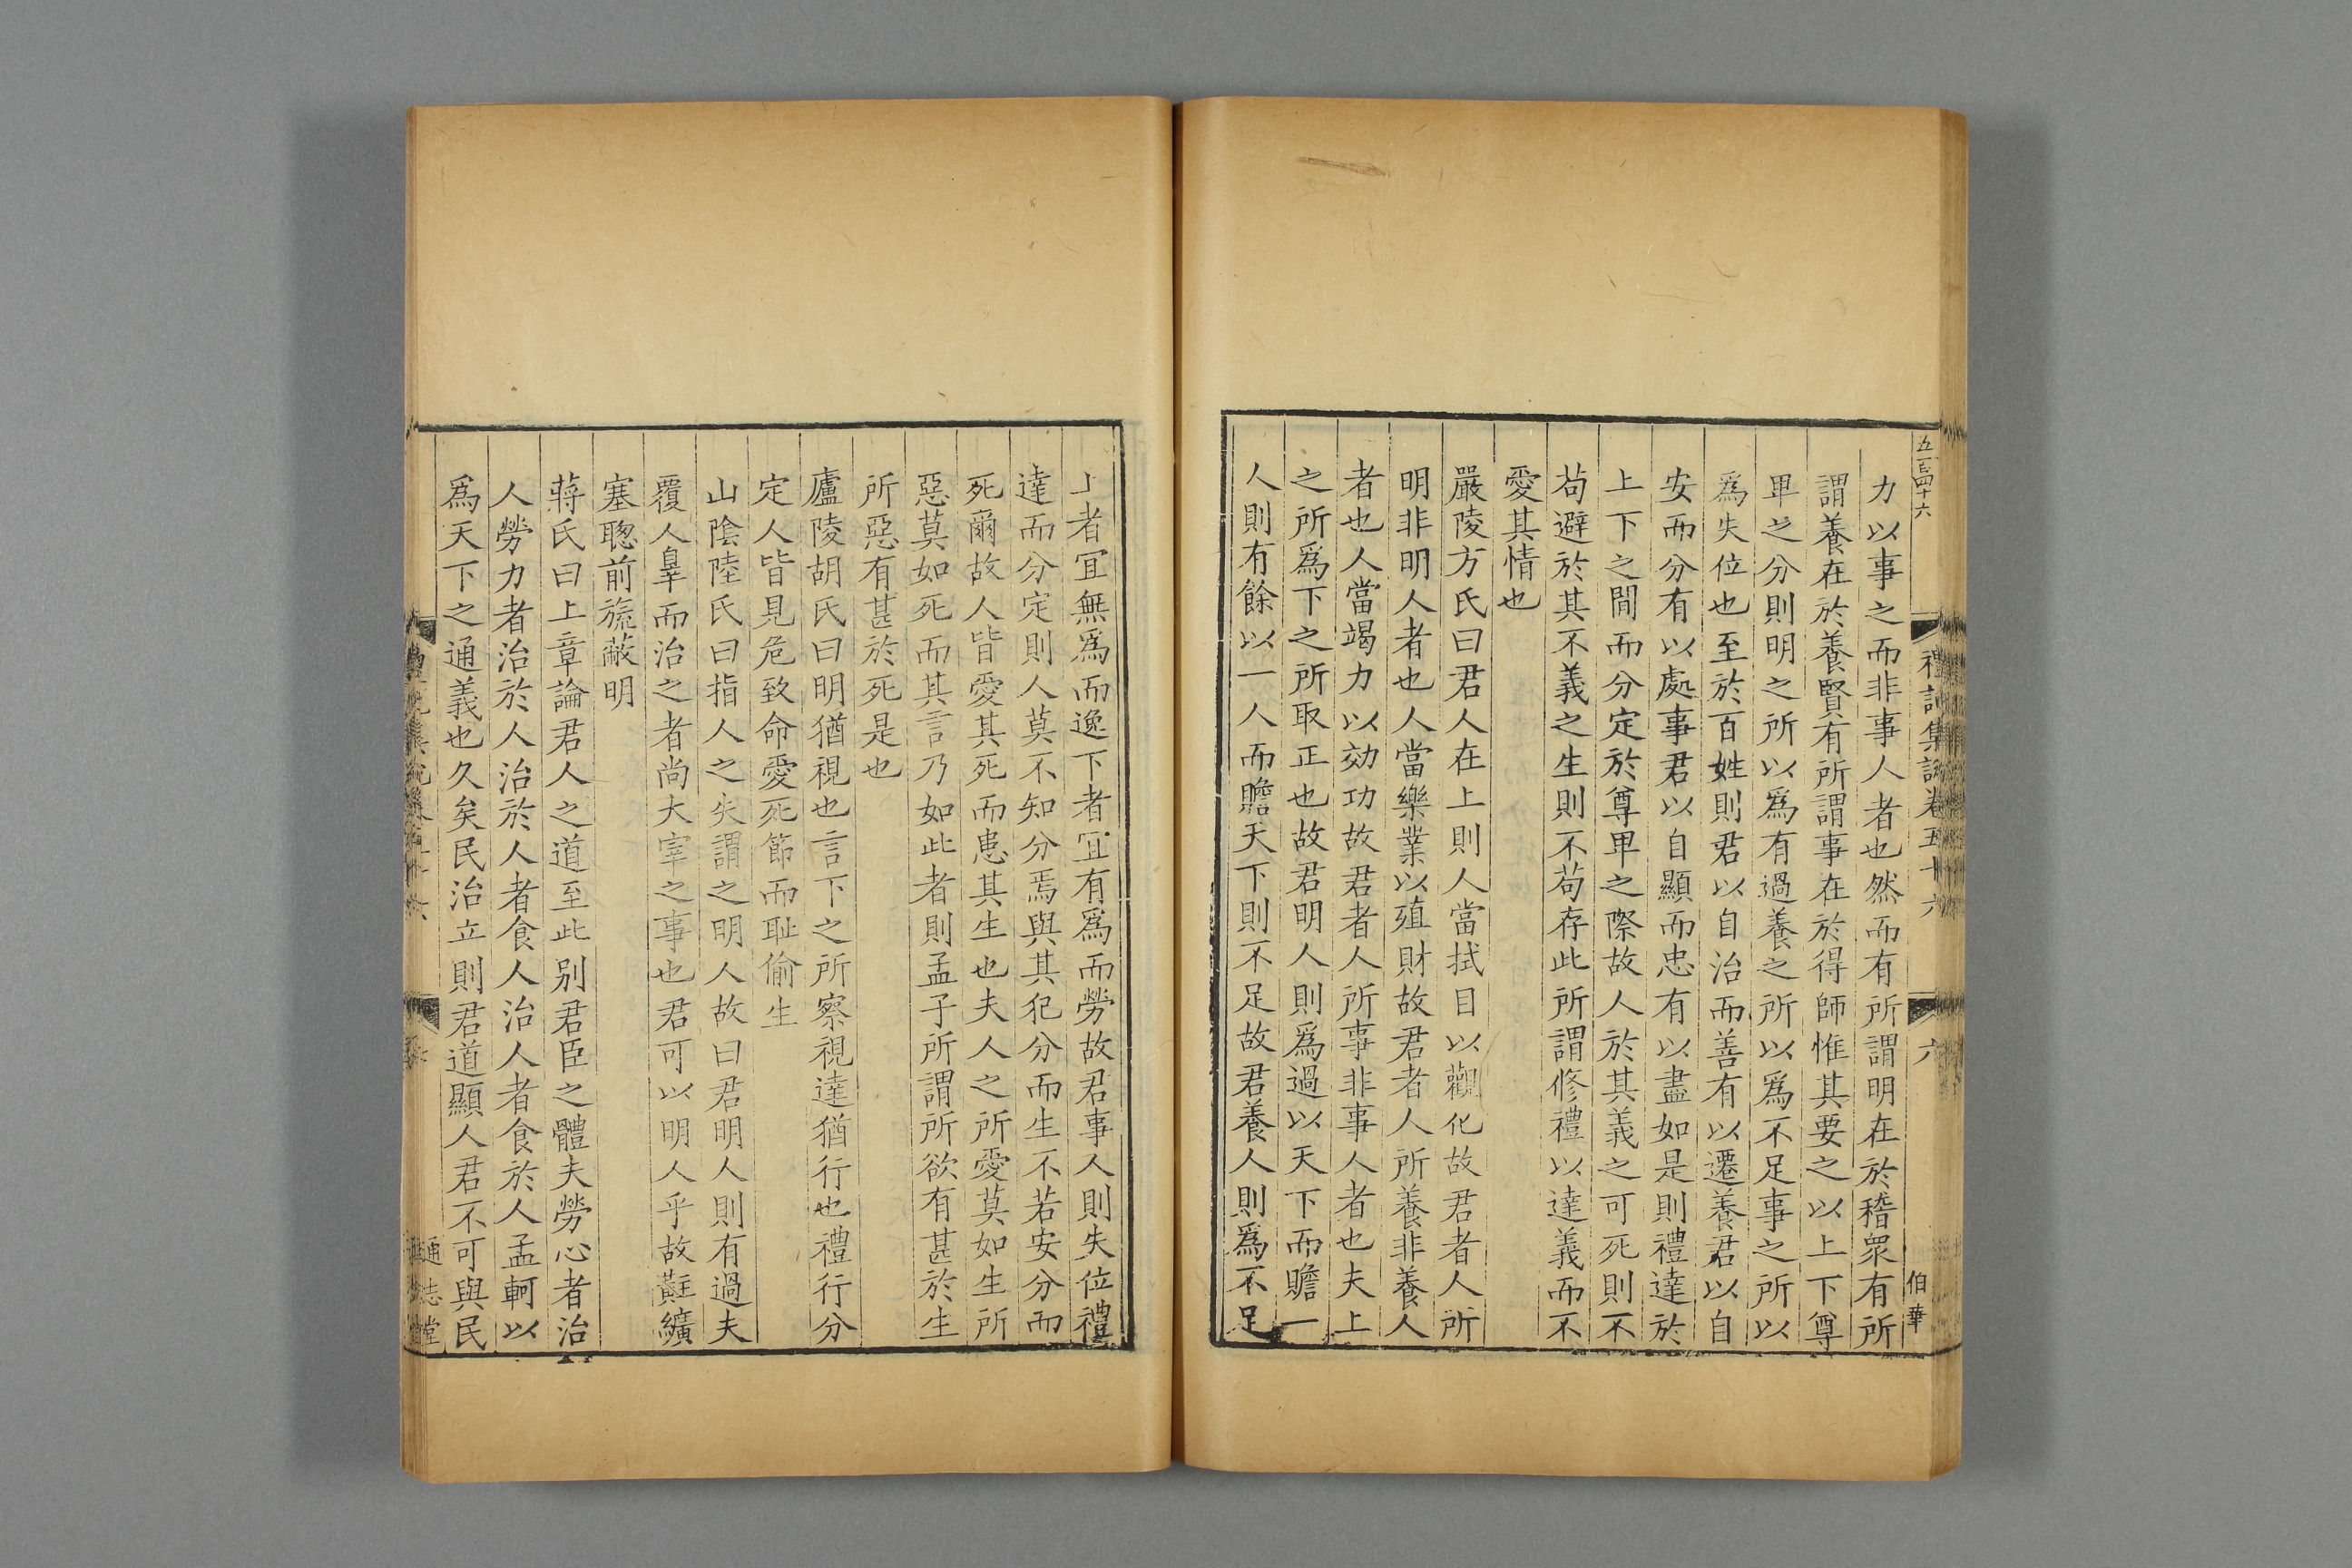 五百四十六
禮記集說卷五十六
六
伯華
力以事之而非事人者也然而有所謂明在於稽衆有所
謂養在於養賢有所謂事在於得師惟其要之以上下尊
卑之分則明之所以爲有過養之所以爲不足事之所以
爲失位也至於百姓則君以自治而善有以遷養君以自
安而分有以處事君以自顯而忠有以盡如是則禮達於
上下之間而分定於尊卑之際故人於其義之可死則不
苟避於其不義之生則不苟存此所謂修禮以達義而不
愛其情也
嚴陵方氏曰君人在上則人當拭目以觀化故君者人所
明非明人者也人當樂業以殖財故君者人所養非養人
者也人當竭力以効功故君者人所事非事人者也夫上
之所爲下之所取正也故君明人則爲過以天下而贍一
人則有餘以一人而贍天下則不足故君養人則爲不足
上者宜無爲而逸下者宜有爲而勞故君事人則失位禮
達而分定則人莫不知分焉與其犯分而生不若安分而
死爾故人皆愛其死而患其生也夫人之所愛莫如生所
惡莫如死而其言乃如此者則孟子所謂所欲有甚於生
所惡有甚於死是也
廬陵胡氏曰明猶視也言下之所察視達猶行也禮行分
定人皆見危致命愛死節而耻偷生
山陰陸氏曰指人之失謂之明人故曰君明人則有過夫
覆人辠而治之者尚大宰之事也君可以明人乎故黈纊
塞聰前旒蔽明
蔣氏曰上章論君人之道至此别君臣之體夫勞心者治
人勞力者治於人治於人者食人治人者食於人孟軻以
爲天下之通義也久矣民治立則君道顯人君不可與民
通志堂